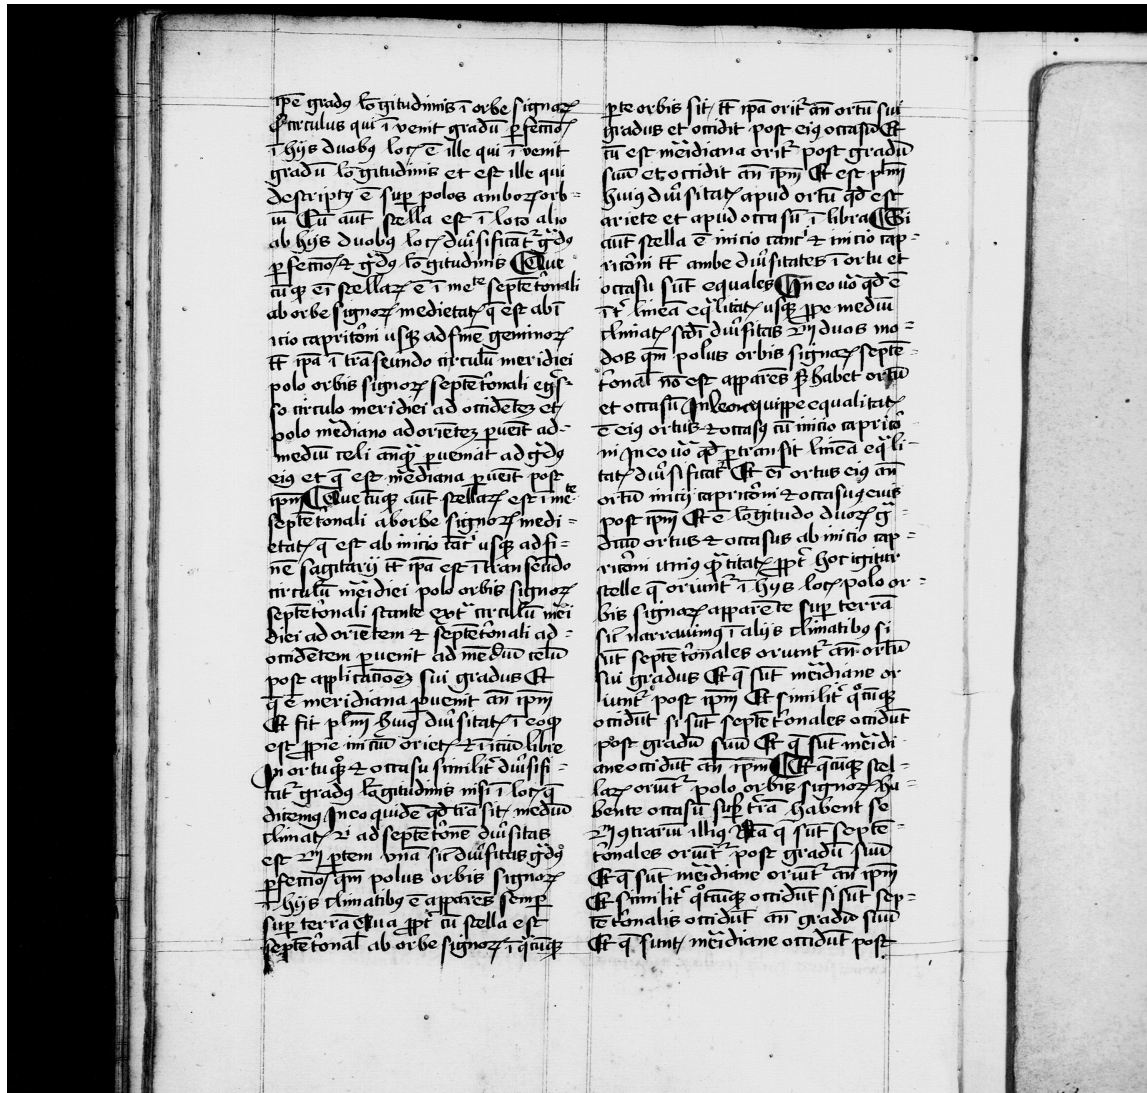 ip̄e gradꝯ lo̅gitudinis ı̅ orbe signoꝝ
Et circulus qui ı̅venit gradū ꝑfectio̅ꝭ
ı̅ hijs duobꝯ locꝭ ē ille qui ı̅venit
gradū lo̅gitudinis et est ille qui
descriptꝯ ē suꝑ polos amboꝝ orb-
iū Cū aut̄ stella est ı̅ loco alio
ab hijs duobꝯ locꝭ diu̅sificāt᷑ g̅dꝯ
ꝑfectio̅ꝭ ⁊ g̅dꝯ lo̅gitudinis Que
cūqꝫ eı̅ stellaꝝ ē ı̅ me^te septēt̍onali
ab orbe signoꝝ medietatꝭ q̄ est ab ı̅
icio capric̍oni usqꝫ ad finē geminoꝝ
tūc ip̄a ı̅ tra̅seundo circulū meridiei
polo orbis signoꝝ septēt̍onali eg̅s-
so circulo meridiei ad occidētēꝫ et
polo m̅diano ad oriētēꝫ ꝑueīt ad-
mediū celi anq̅ ꝑueniat ad g̅dꝯ
eiꝯ et q̄ est m̅diana ꝑueīt post
ip̄m Que cūqꝫ aut̄ stellaꝝ est ı̅ me^te
septēt̍onali ab orbe signoꝝ medi-
etatꝭ q̄ est ab inicio ca̅c̍ usqꝫ ad fi-
nē sagitarij tūc ip̄a est ı̅ tra̅seūdo
circulū m̅idiei polo orbis signoꝝ
septēt̍onali stante ext̅ circulū m̅i
diei ad oriētem ⁊ septēt̍onali ad-
occidētem ꝑuenit ad mediū celū
post applicatio̅eꝫ sui gradus Et
q̄ ē meridiana ꝑuenit an̄ ip̄m
Et fit pl̅m huiꝯ diu̅sitatꝭ ı̅ eo qꝫ
est ꝓpe iniciū arietꝭ ⁊ ı̅iciū libre
In ortu qꝫ ⁊ occasu similit᷑ diu̅sifi-
cat᷑ gradꝯ lo̅gitudinis nisi ı̅ locꝭ q̄
dicemꝯ In eo quidē qd̄ tra̅sit mediū
climatꝭ ad septēt̍onē diu̅sitas
est ꝑtem vnā sic̄ diu̅sitas g̅dꝯ
ꝑfectio̅ꝭ qm̄ polus orbis signoꝝ
ı̅ hijs climatibꝯ ē apparēs semꝑ
suꝑ terrā Qua ꝓpt᷑ cū stella est
septēt̍onal̄ ab orbe signoꝝ ı̅ q̅cūqꝫ
ꝑte orbis sit tūc ip̄a orit᷑ an̄ ortū sui
gradus et occidit post eiꝯ occasū Et
cū est m̅idiana orit᷑ post gradū
suū et occidit an̄ ip̄m Et est pl̅m
huiꝯ diu̅sitatꝭ apud ortū qd̄ est
ariete et apud occasū ı̅ libra Si
aut̄ stella ē inicio canc̍ ⁊ inicio cap-
ric̍oni tūc ambe diu̅sitates ı̅ ortu et
occasu sūt equales In eo uo̅ qd̄ ē
ı̅t᷑ lineā eq̅litatꝭ usqꝫ ꝓpe mediū
climatꝭ sc̄di diu̅sitas duos mo-
dos qm̄ polus orbis signoꝝ septē-
t̍onal̄ no̅ est apparēs sꝫ habet ortū
et occasū In leone quippe equalitatꝭ
ē eiꝯ ortus ⁊ occasꝯ cū inicio capric̍o
ni In eo uo̅ qd̄ ꝑtransit lineā eq̅li-
tatꝭ diu̅sificat᷑ Et eı̅ ortus eiꝯ an̄
ortū inicij capric̍oni ⁊ occasꝯ eius
post ip̄m Et ē lo̅gitudo duoꝝ g̅-
duū ortus ⁊ occasus ab inicio cap-
ric̍oni uniꝯ q̅titatꝭ ꝓpt᷑ hoc igitur
stelle q̄ oriunt᷑ ı̅ hijs locꝭ polo or-
bis signoꝝ apparēte suꝑ terrā
sic̄ narrauimꝯ ı̅ alijs climatibꝯ si
sūt septēt̍onales oriunt᷑ an̄ ortū
sui gradus Et q̄ sūt m̅idiane or
iunt᷑ post ip̄m Et similit᷑ qn̄cūqꝫ
occidūt si sūt septēt̍onales occidūt
post gradū suū Et q̄ sūt m̅idi
ane occidūt an̄ ip̄m Et q̄cūqꝫ stel-
laꝝ oriūt᷑ polo orbis signoꝝ ha-
bente occasū suꝑ tr̅ā habent se
ꝯtrariū illiꝯ Nā q̄ sūt septē-
t̍onales oriūt᷑ post gradū suū
Et q̄ sūt m̅idiane oriūt᷑ an̄ ip̄m
Et similit᷑ qn̄cūqꝫ occidūt si sūt sep-
tēt̍onalis occidūt an̄ gradū suū
Et q̄ sunt m̅idiane occidūt post